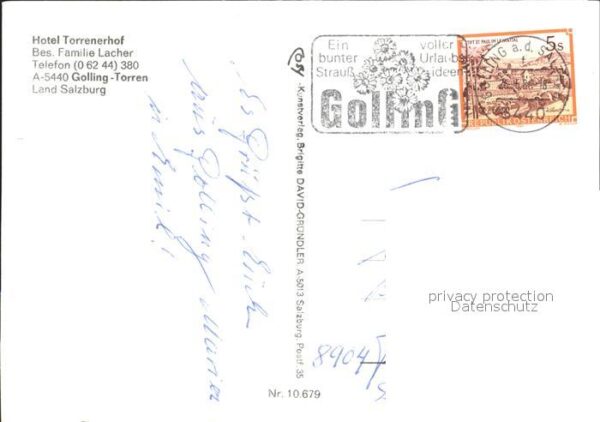 Hotel Torrenerhof
Bes. Familie Lacher
Telefon (0 62 44) 380
A-5440 Golling-Torren
Land Salzburg
Ein voller
bunter Urlaubs-
Strauß ideen
Golling
5s
GOLLING a.d. SAL
5440
REPUBLIK ÖSTERREICH
Es Grüßt Euch
aus Golling
Cosy -Kunstverlag, Brigitte DAVID-GRÜNDLER A-5013 Salzburg, Postf. 35
Nr. 10.679
8904
privacy protection
Datenschutz